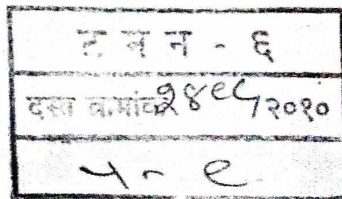 ट न न - ६
दस्त क्रमांक २४९५/२०१०
५ - ९